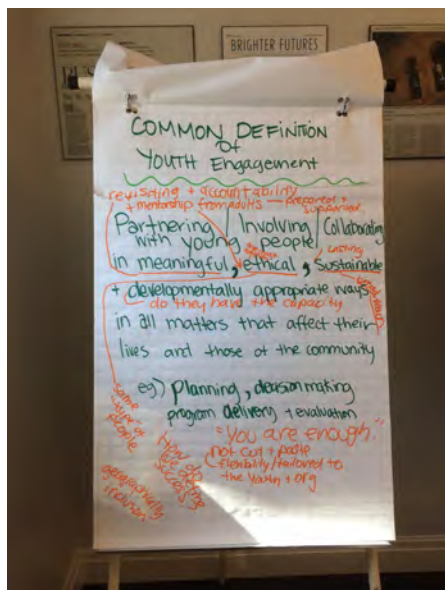 BRIGHTER FUTURES
COMMON DEFINITION
Of
YOUTH Engagement
revisiting + accountability
+ mentorship from adults — prepared + supported
Partnering / Involving / Collaborating
with young people
in meaningful, ethical, Sustainable
lasting
+ developmentally appropriate ways
do they have the capacity
in all matters that affect their
lives and those of the community
eg) Planning, decision making
program delivery + evaluation
"you are enough."
not cut + paste
flexibility/tailored to
the youth + org
same type of people
How do we define success
geographically
inclusion